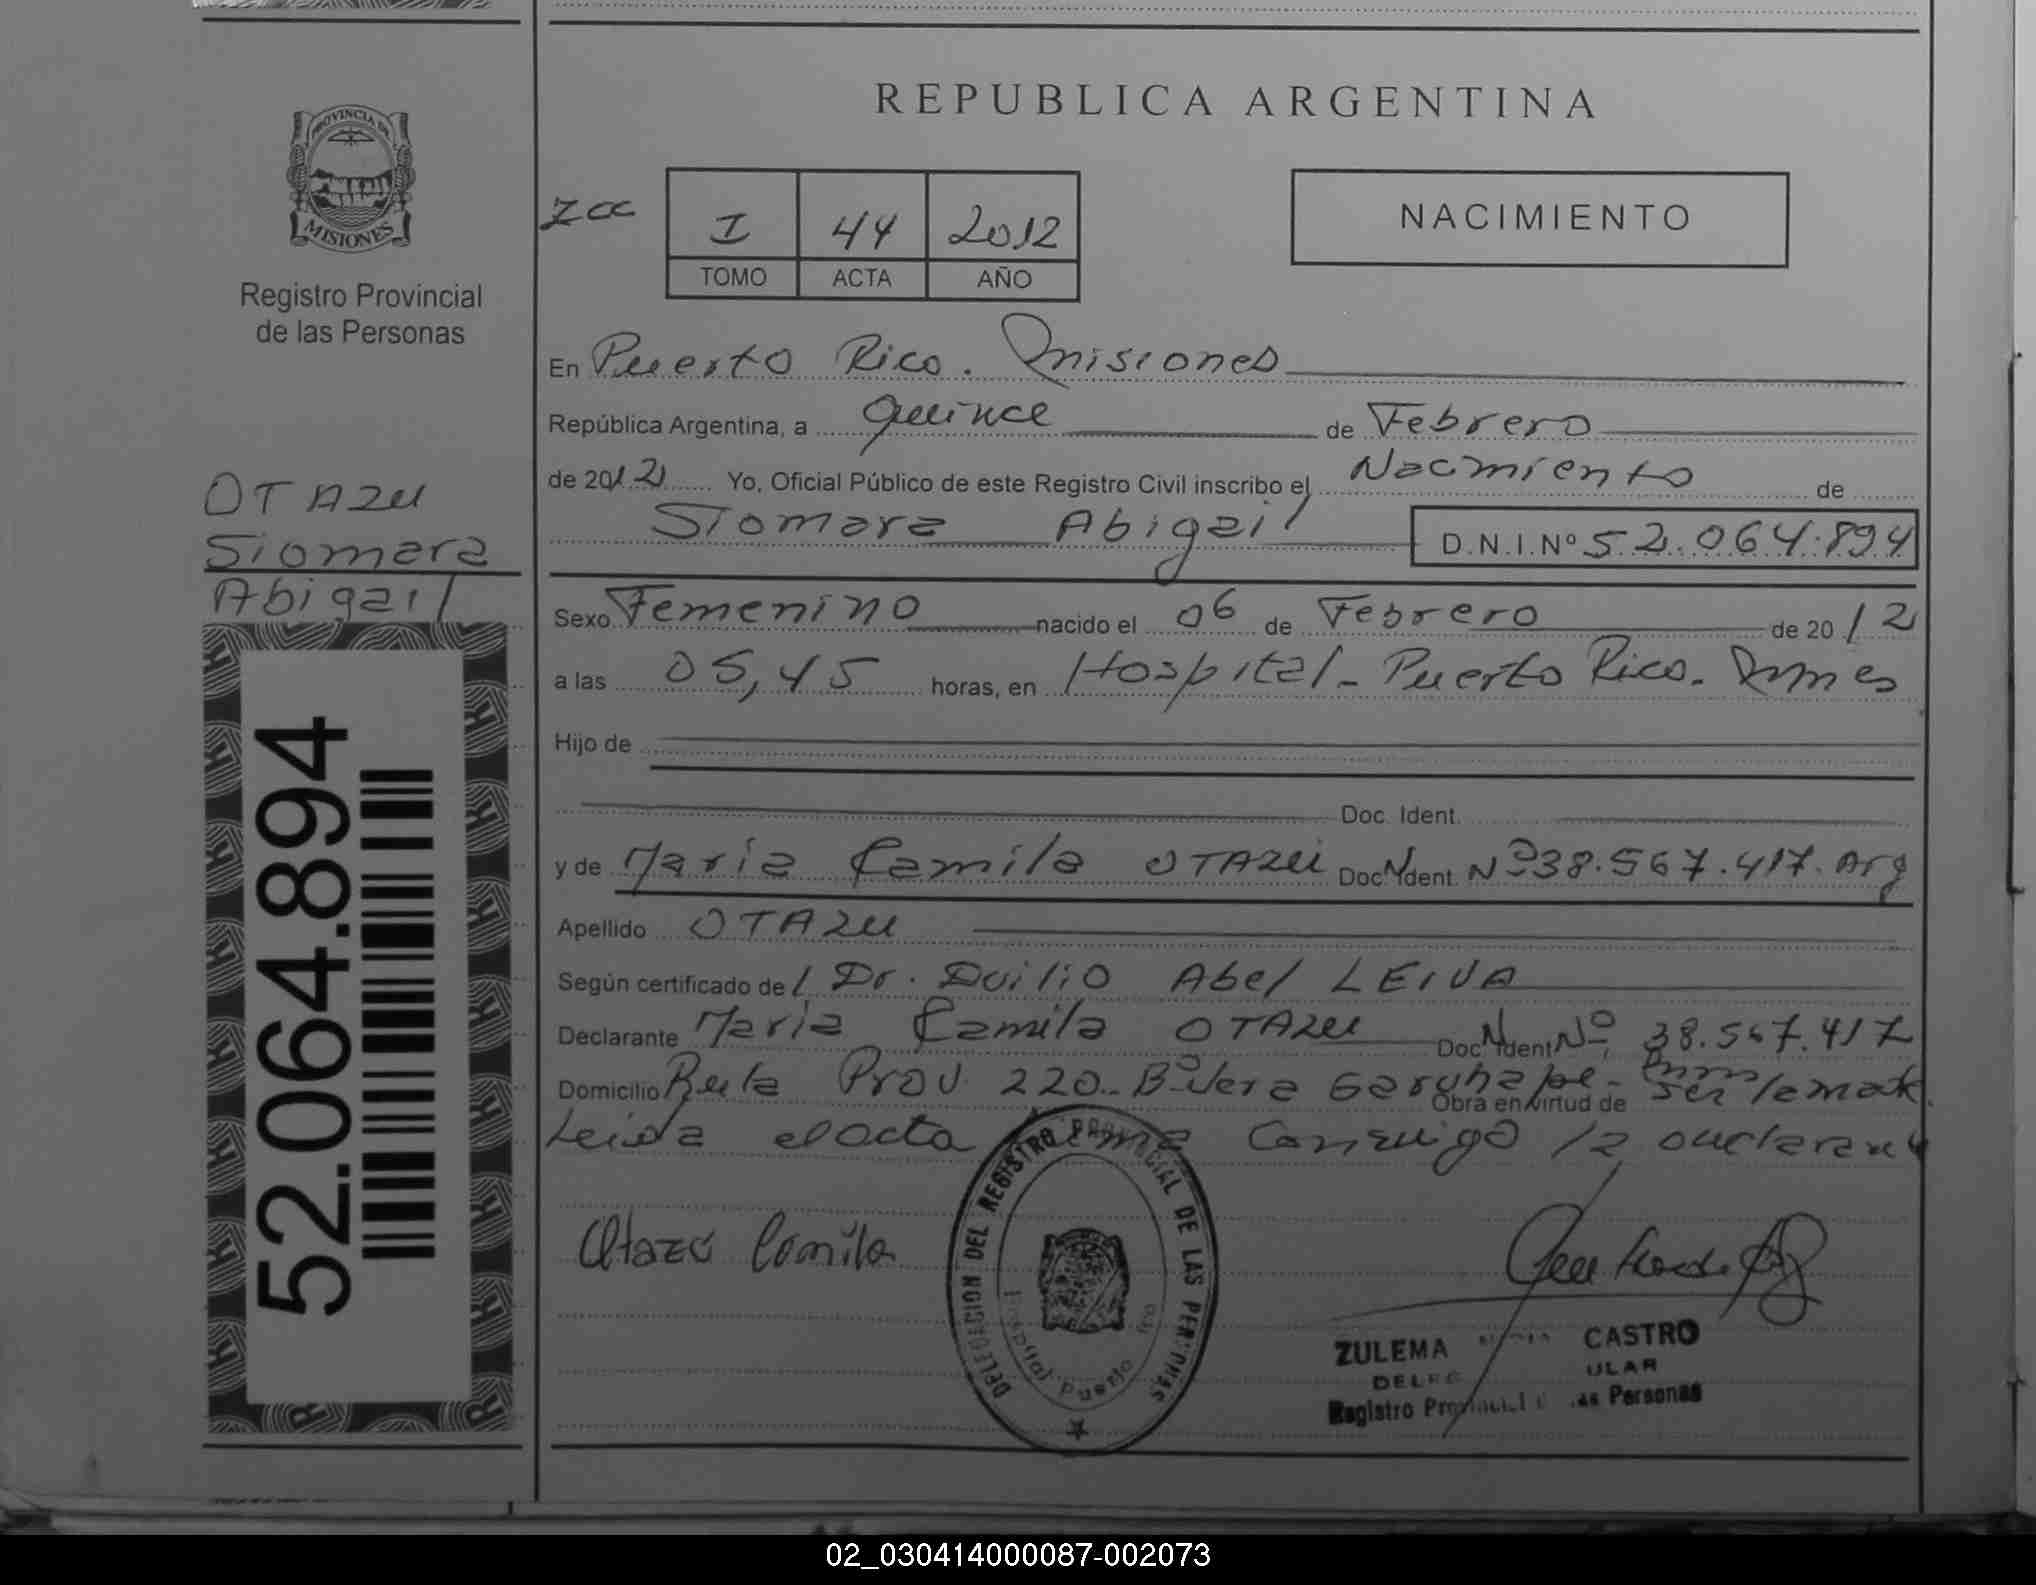 REPUBLICA ARGENTINA
PROVINCIA DE
MISIONES
Registro Provincial
de las Personas
zcc
I 44 2012
TOMO ACTA AÑO
NACIMIENTO
En Puerto Rico. Misiones
República Argentina, a quince de Febrero
de 2012 Yo, Oficial Público de este Registro Civil inscribo el Nacimiento de
Siomara Abigail D.N.I.Nº 52.064.894
OTAZU
Siomara
Abigail
52.064.894
Sexo Femenino nacido el 06 de Febrero de 2012
a las 05,45 horas, en Hospital - Puerto Rico. Mnes
Hijo de
Doc. Ident.
y de Maria Camila OTAZU Doc. Ident. Nº 38.567.417. Arg
Apellido OTAZU
Según certificado del Dr. Duilio Abel LEIVA
Declarante Maria Camila OTAZU Doc. Ident Nº 38.567.417
Domicilio Ruta Prov. 220. Bº Vera Garuhape - Mnes
Obra en virtud de ser la madre.
Leida el acta firma conmigo la declarante
Otazú Camila
DELEGACION DEL REGISTRO PROVINCIAL DE LAS PERSONAS
Hospital Puerto Rico
ZULEMA CASTRO
Registro Provincial de las Personas
02_030414000087-002073